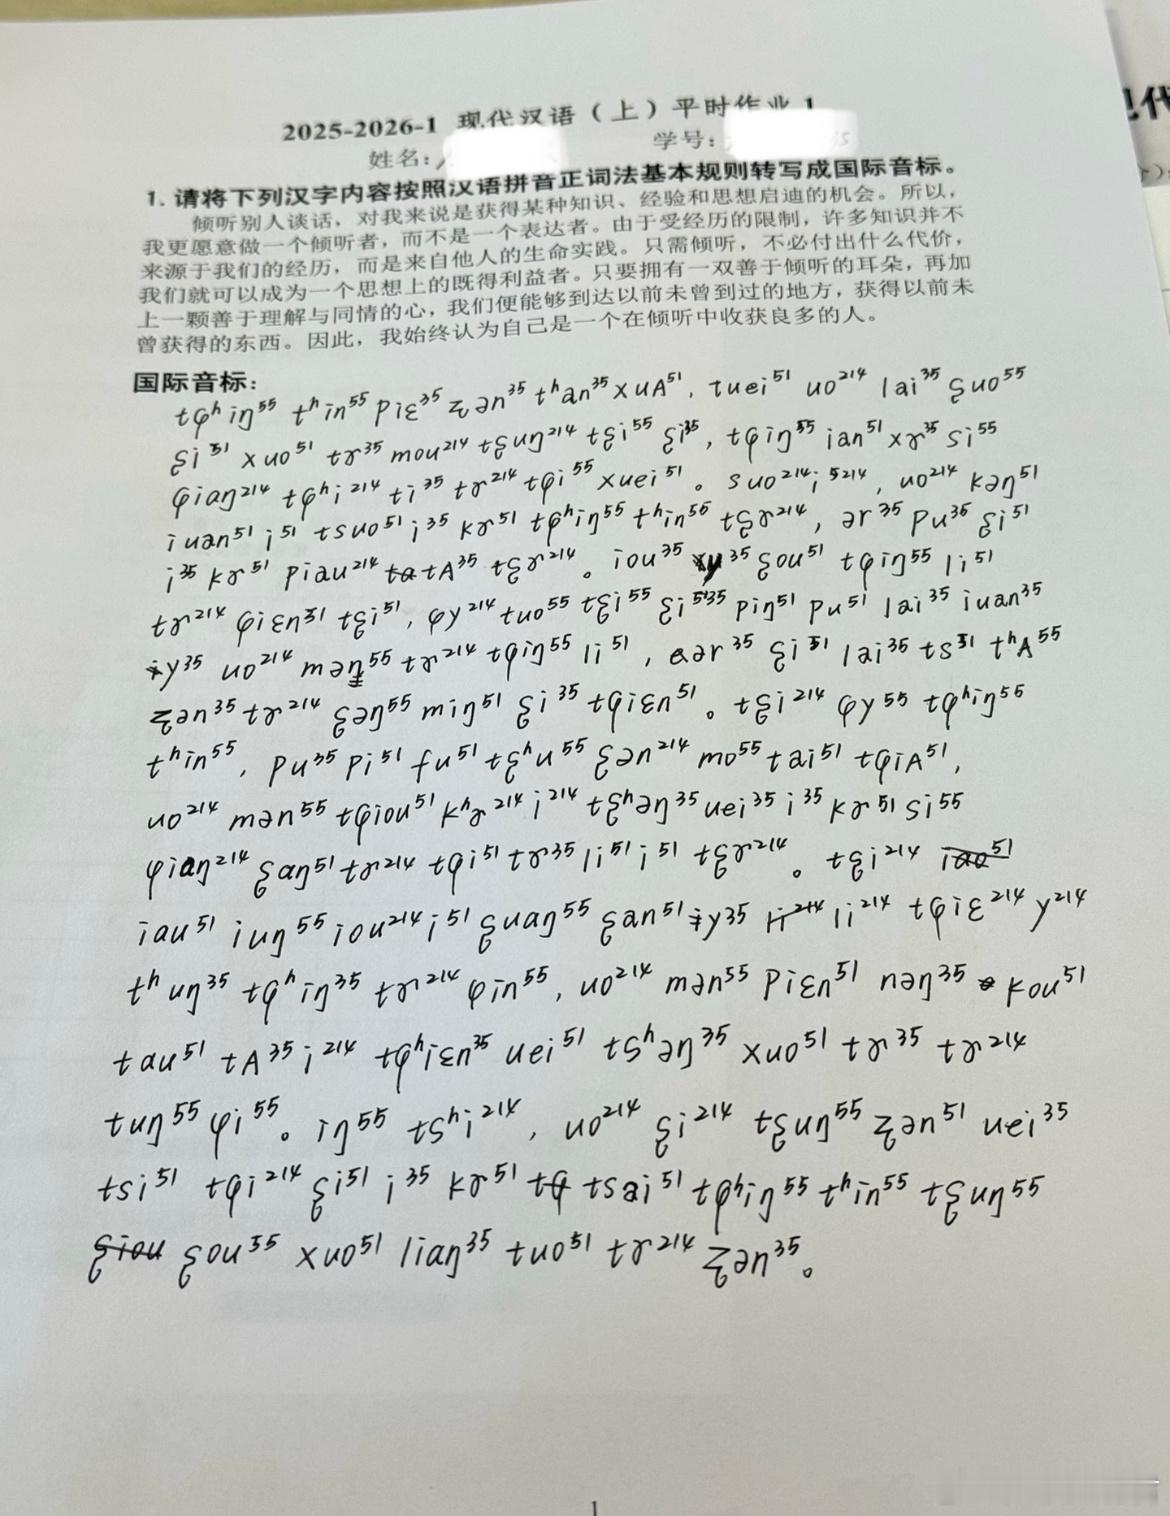 2025-2026-1 现代汉语（上）平时作业 1
姓名： 学号：
1. 请将下列汉字内容按照汉语拼音正词法基本规则转写成国际音标。
倾听别人谈话，对我来说是获得某种知识、经验和思想启迪的机会。所以，
我更愿意做一个倾听者，而不是一个表达者。由于受经历的限制，许多知识并不
来源于我们的经历，而是来自他人的生命实践。只需倾听，不必付出什么代价，
我们就可以成为一个思想上的既得利益者。只要拥有一双善于倾听的耳朵，再加
上一颗善于理解与同情的心，我们便能够到达以前未曾到过的地方，获得以前未
曾获得的东西。因此，我始终认为自己是一个在倾听中收获良多的人。
国际音标：
tɕʰiŋ⁵⁵ tʰin⁵⁵ piɛ³⁵ ʐən³⁵ tʰan³⁵ xuA⁵¹, tuei⁵¹ uo²¹⁴ lai³⁵ ʂuo⁵⁵
ʂi⁵¹ xuo⁵¹ tɤ³⁵ mou²¹⁴ tʂuŋ²¹⁴ tʂi⁵⁵ ʂi³⁵, tɕiŋ⁵⁵ ian⁵¹ xɤ³⁵ si⁵⁵
ɕiaŋ²¹⁴ tɕʰi²¹⁴ ti³⁵ tɤ²¹⁴ tɕi⁵⁵ xuei⁵¹。suo²¹⁴ i²¹⁴, uo²¹⁴ kəŋ⁵¹
iuan⁵¹ i⁵¹ tsuo⁵¹ i³⁵ kɤ⁵¹ tɕʰiŋ⁵⁵ tʰin⁵⁵ tʂɤ²¹⁴, ər³⁵ pu³⁵ ʂi⁵¹
i³⁵ kɤ⁵¹ piau²¹⁴ tA³⁵ tʂɤ²¹⁴。iou³⁵ y³⁵ ʂou⁵¹ tɕiŋ⁵⁵ li⁵¹
tɤ²¹⁴ ɕiɛn⁵¹ tʂi⁵¹, ɕy²¹⁴ tuo⁵⁵ tʂi⁵⁵ ʂi³⁵ piŋ⁵¹ pu⁵¹ lai³⁵ iuan³⁵
y³⁵ uo²¹⁴ mən⁵⁵ tɤ²¹⁴ tɕiŋ⁵⁵ li⁵¹, ər³⁵ ʂi⁵¹ lai³⁵ ts⁵¹ tʰA⁵⁵
ʐən³⁵ tɤ²¹⁴ ʂəŋ⁵⁵ miŋ⁵¹ ʂi³⁵ tɕiɛn⁵¹。tʂi²¹⁴ ɕy⁵⁵ tɕʰiŋ⁵⁵
tʰin⁵⁵, pu³⁵ pi⁵¹ fu⁵¹ tʂʰu⁵⁵ ʂən²¹⁴ mo⁵⁵ tai⁵¹ tɕiA⁵¹,
uo²¹⁴ mən⁵⁵ tɕiou⁵¹ kʰɤ²¹⁴ i²¹⁴ tʂʰəŋ³⁵ uei³⁵ i³⁵ kɤ⁵¹ si⁵⁵
ɕiaŋ²¹⁴ ʂaŋ⁵¹ tɤ²¹⁴ tɕi⁵¹ tɤ³⁵ li⁵¹ i⁵¹ tʂɤ²¹⁴。tʂi²¹⁴
iau⁵¹ iuŋ⁵⁵ iou²¹⁴ i⁵¹ ʂuaŋ⁵⁵ ʂan⁵¹ y³⁵ li²¹⁴ tɕiɛ²¹⁴ y²¹⁴
tʰuŋ³⁵ tɕʰiŋ³⁵ tɤ²¹⁴ ɕin⁵⁵, uo²¹⁴ mən⁵⁵ piɛn⁵¹ nəŋ³⁵ kou⁵¹
tau⁵¹ tA³⁵ i²¹⁴ tɕʰiɛn³⁵ uei⁵¹ tsʰəŋ³⁵ xuo⁵¹ tɤ³⁵ tɤ²¹⁴
tuŋ⁵⁵ ɕi⁵⁵。iŋ⁵⁵ tsʰi²¹⁴, uo²¹⁴ ʂi²¹⁴ tʂuŋ⁵⁵ ʐən⁵¹ uei³⁵
tsi⁵¹ tɕi²¹⁴ ʂi⁵¹ i³⁵ kɤ⁵¹ tsai⁵¹ tɕʰiŋ⁵⁵ tʰin⁵⁵ tʂuŋ⁵⁵
ʂou⁵⁵ xuo⁵¹ liaŋ³⁵ tuo⁵¹ tɤ²¹⁴ ʐən³⁵。
1